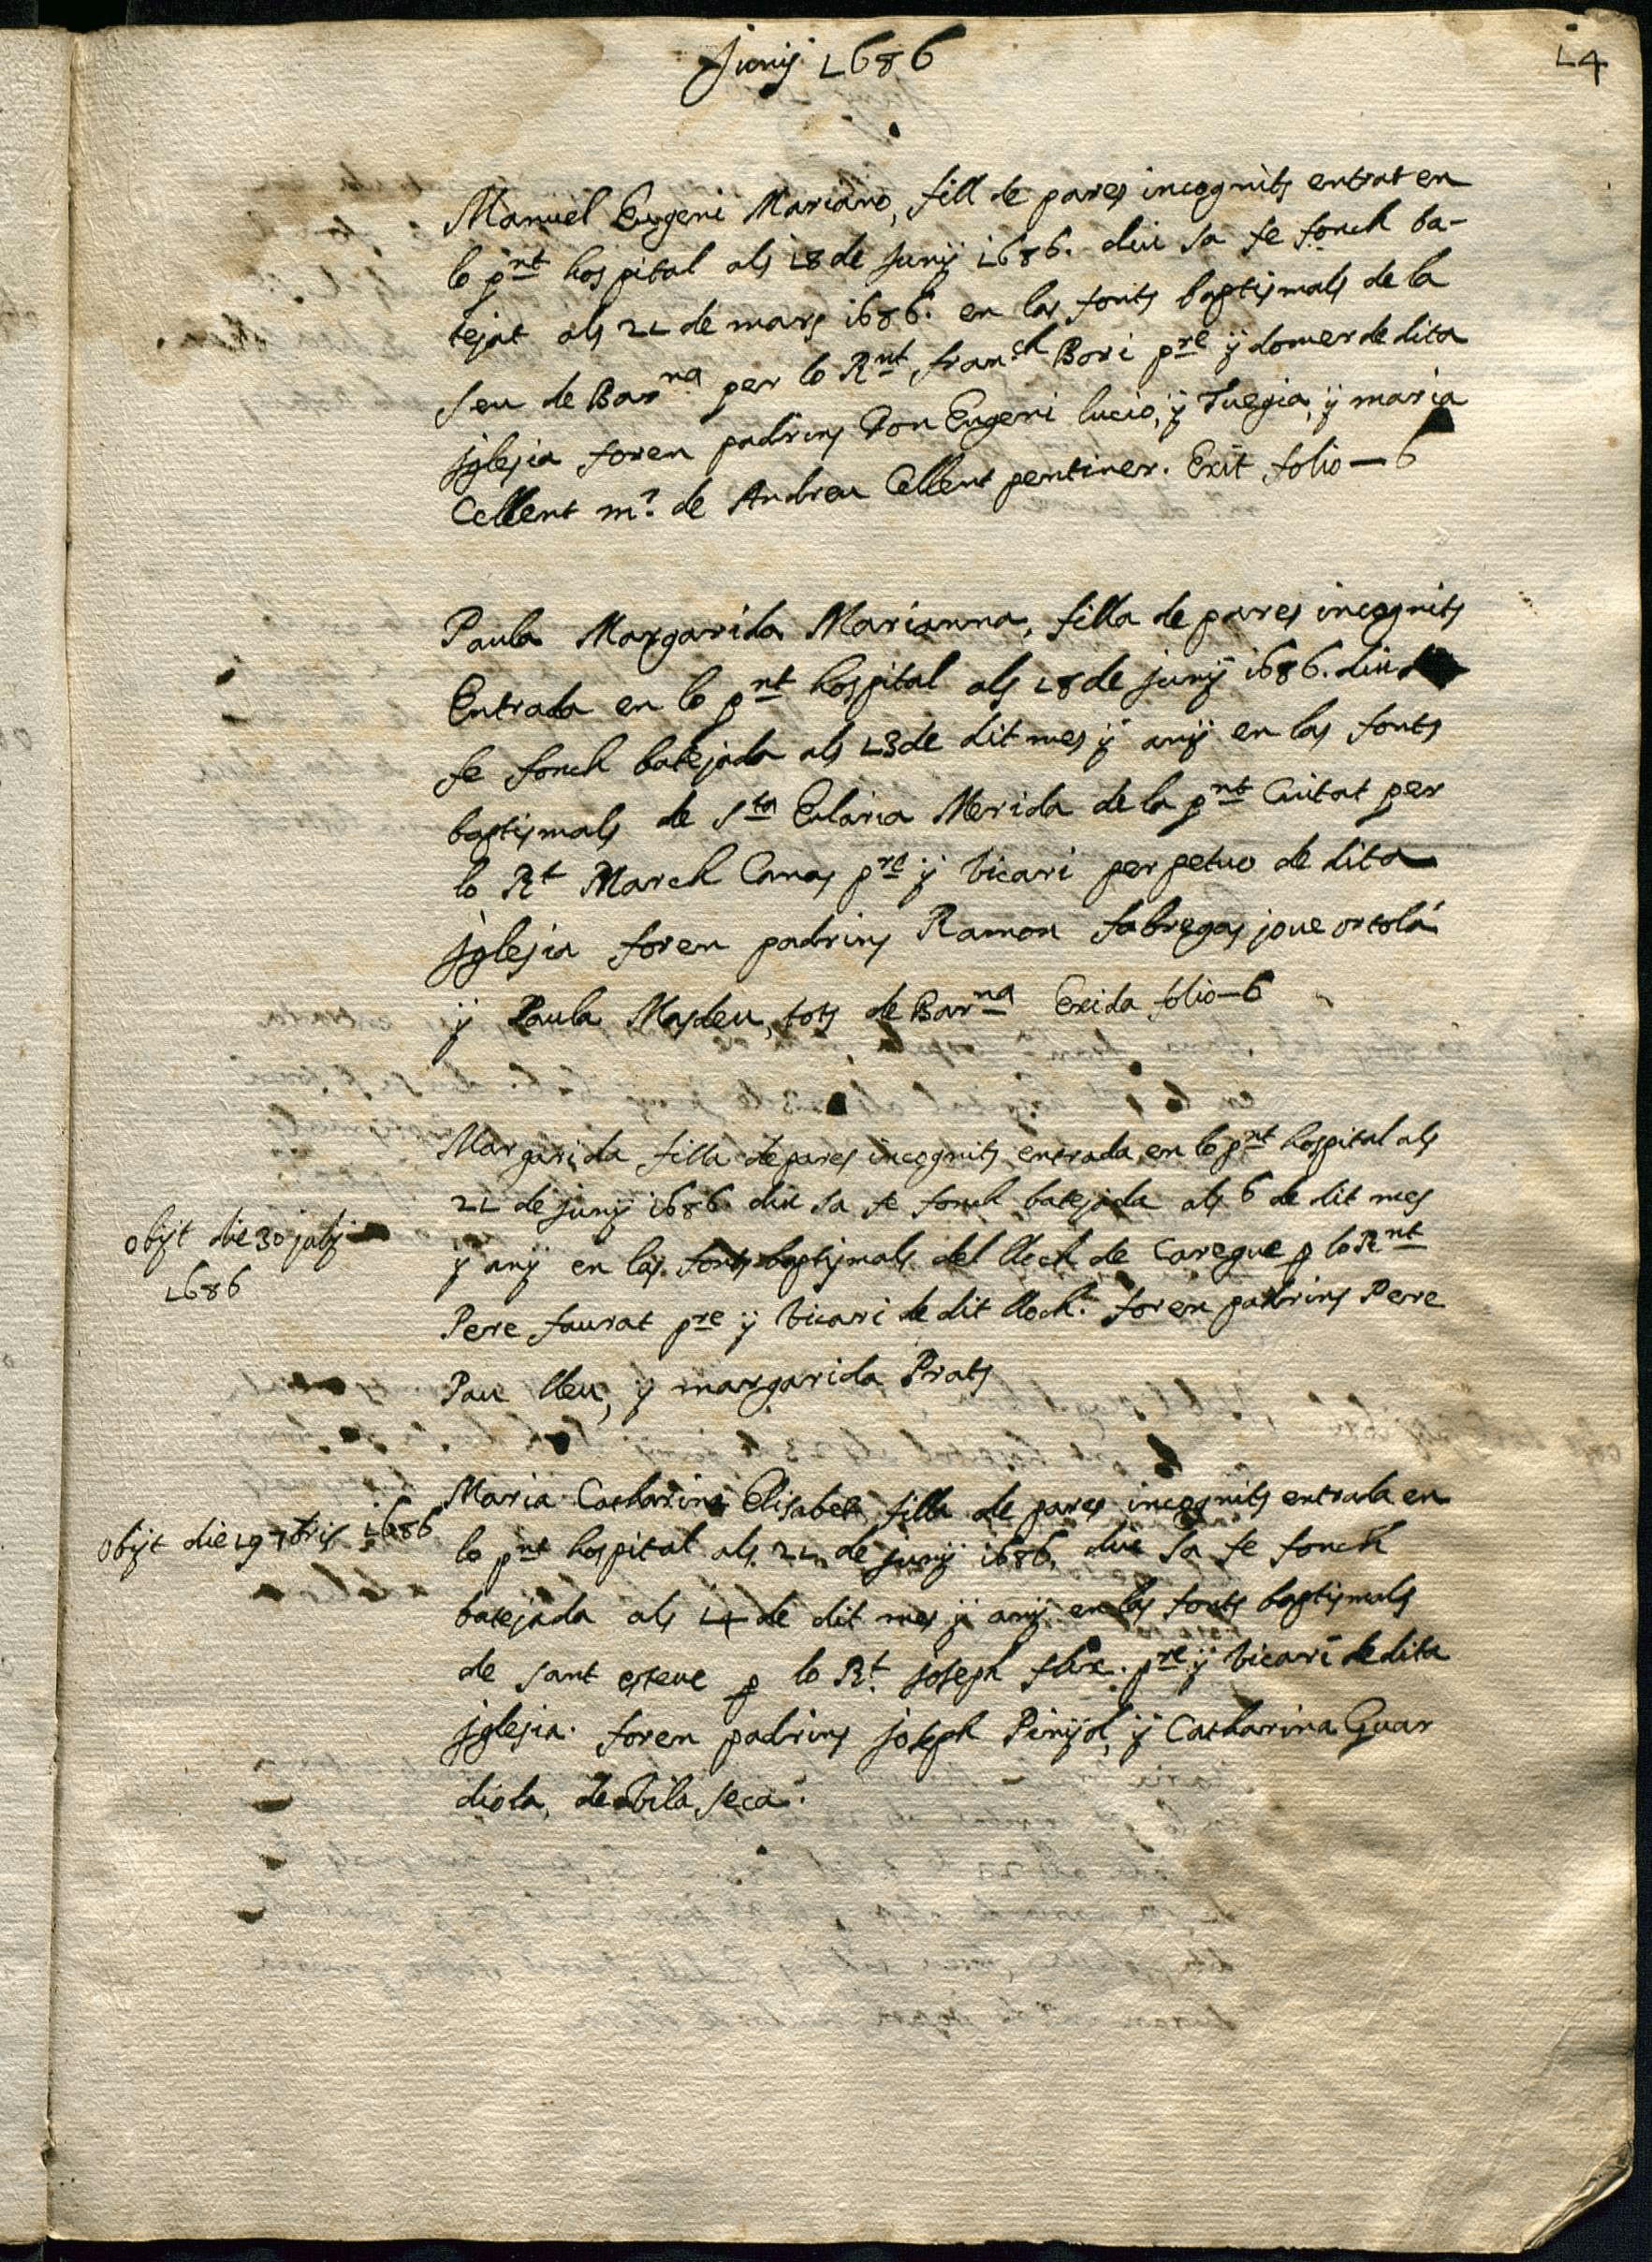 Junÿ 1686
14
Manuel Eugeni Mariano, fill de pares incognits entrat en
lo pnt hospital als 18 de Junÿ 1686. diu sa fe fonch ba-
tejat als 21 de mars 1686. en las fonts baptismals de la
seu de Barna per lo Rnt franch Bori pre ÿ domer de dita
jglesia foren padrins Don Eugeni lucio, ÿ Tuegia, ÿ maria
Cellent mr. de Andreu Cellent pentiner. Exit folio — 6
Paula Margarida Marianna, filla de pares incognits
Entrada en lo pnt hospital als 18 de junÿ 1686. diu
fe fonch batejada als 13 de dit mes ÿ anÿ en las fonts
baptismals de Sta Eularia Merida de la pnt Ciutat per
lo Rt March Canas pre ÿ Vicari perpetuo de dita
jglesia foren padrins Ramon fabregas joue ortolá
ÿ Paula Masdeu, tots de Barna Exida folio — 6
Margarida filla de pares incognits entrada en lo pnt hospital als
21 de junÿ 1686 diu sa fe fonch batejada als 6 de dit mes
obijt die 30 julÿ
1686
ÿ anÿ en las fonts baptismals del lloch de Caregue p lo Rnt
Pere faurat pre ÿ Vicari de dit lloch. foren padrins Pere
Pau lleu, ÿ margarida Prats
Maria Catharina Elisabet, filla de pares incognits entrada en
obijt die 19 7bris 1686
lo pnt hospital als 21 de junÿ 1686. diu sa fe fonch
batejada als 14 de dit mes ÿ anÿ en las fonts baptismals
de sant esteue p lo Rt. joseph flix. pre ÿ Vicari de dita
jglesia. foren padrins joseph Pinÿol, ÿ Catharina Guar
diola, de Vila seca.